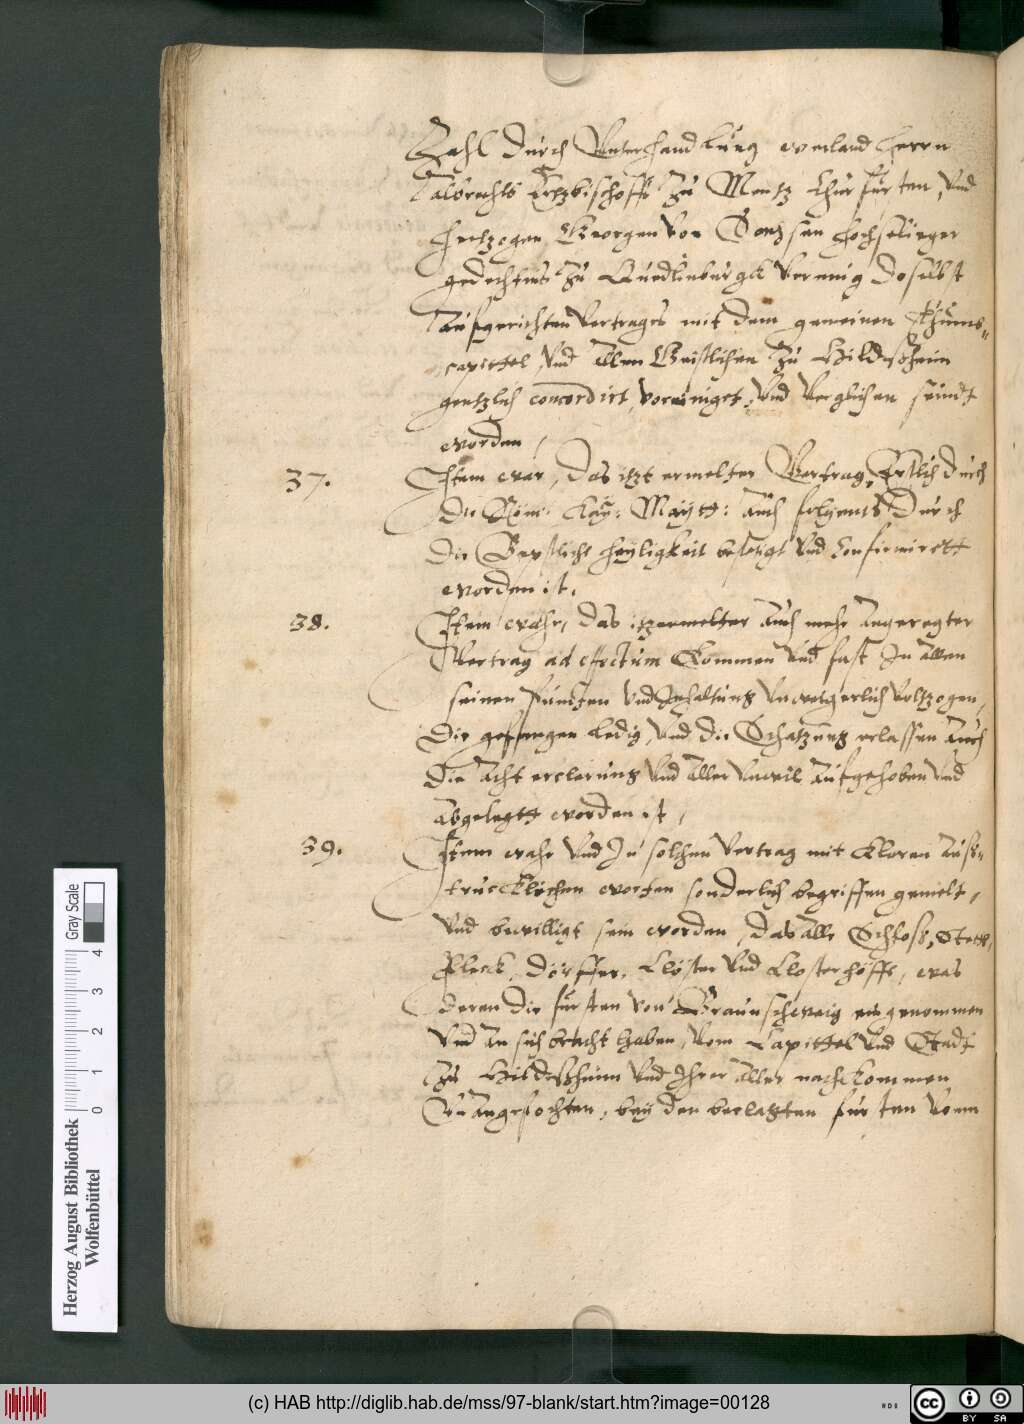 Zahl durch Unterhandlung weiland Herrn
Albrechts Ertzbischoffs zu Mentz Churfursten, und
Hertzogen Georgen von Sachssen hochseliger
gedechtnus zu Quedlinburgk vermug doselbst
aufgerichten vertrages mit dem gemeinen Thums-
capittel, und allen Geistlichen zu Hildeßheim
gentzlich concordirt, voreiniget, und verglichen seindt
worden,
37. Item war, das itzt ermelter Vertrag, Erstlich durch
die Röm: Kay: Maytt: auch folgents durch
die Bepstliche heyligkeit bestetigt und confirmirett
worden ist.
38. Item wahr, das itzermelter auch mehr angeregter
Vertrag ad effectum kommen und fast in allen
seinen Puncten und Inhaltung unweigerlich voltzogen,
die gefangen ledig, und die Schatzung erlassen auch
die acht erclerung und aller unwil aufgehoben und
abgelegtt worden ist,
39. Item wahr und in solchen vertrag mit klaren auß-
truecklichen worten sonderlich begriffen gemelt,
und bewilligt sein worden, das alle Schloß, Stett,
Fleck, dörffer, Clöster und Closterhöffe, was
deren die fursten von Braunschweig eingenommen
und an sich bracht haben, vom Capittel und Stadt
zu Hildeßheim und Ihrer aller nachkommen
Unangefochten, bey den berlatzten fursten vom
Herzog August Bibliothek
Wolfenbüttel
Gray Scale
0 1 2 3 4
(c) HAB http://diglib.hab.de/mss/97-blank/start.htm?image=00128
cc BY SA